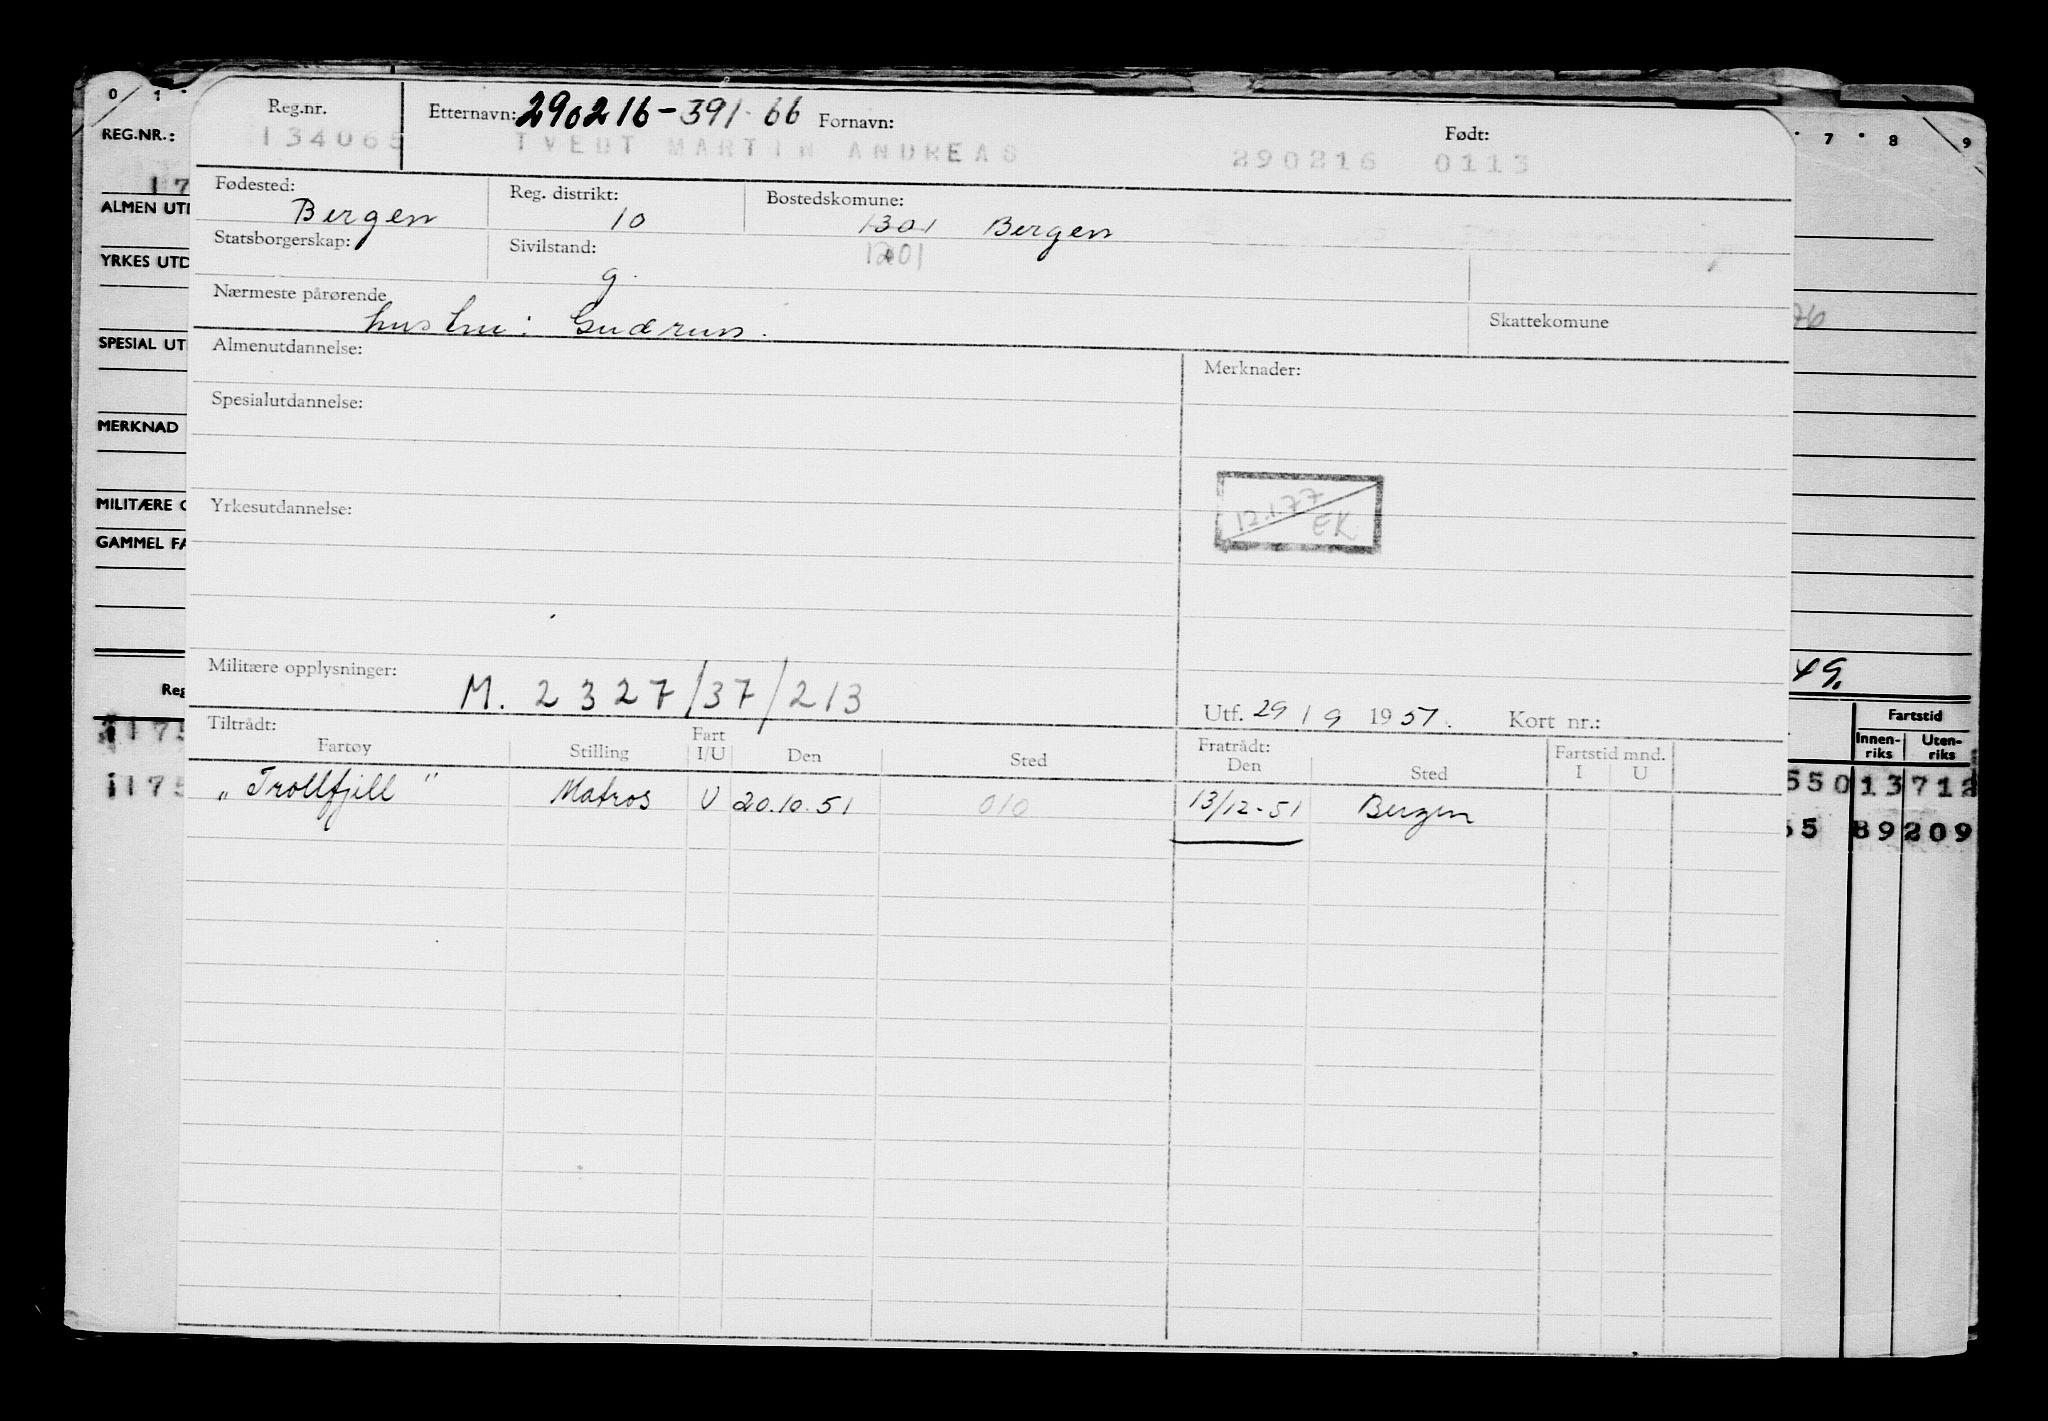 0 1
REG.NR.:
17
ALMEN UT
YRKES UTD
SPESIAL UT
MERKNAD
MILITÆRE
GAMMEL FA
Reg
1175
1175
Reg.nr. Etternavn: 290216-391-66 Fornavn: Født:
134065 TVEDT MARTIN ANDREAS 290216 0113
Fødested: Reg. distrikt: Bostedskomune:
Bergen 10 1301 Bergen
Statsborgerskap: Sivilstand: 1201
g.
Nærmeste pårørende
hustru: Gudrun. Skattekomune
Almenutdannelse: Merknader:
Spesialutdannelse:
Yrkesutdannelse: 12.1.77 EK
Militære opplysninger: M. 2327/37/213
Utf. 29 / 9 1951. Kort nr.:
Tiltrådt: Fratrådt: Fartstid mnd.
Fartøy Stilling Fart I/U Den Sted Den Sted I U
„Trollfjell" Matros U 20.10.51 010 13/12-51 Bergen
7 8 9
76
49.
Fartstid
Innen-riks Uten-riks
550 13 712
65 89 209